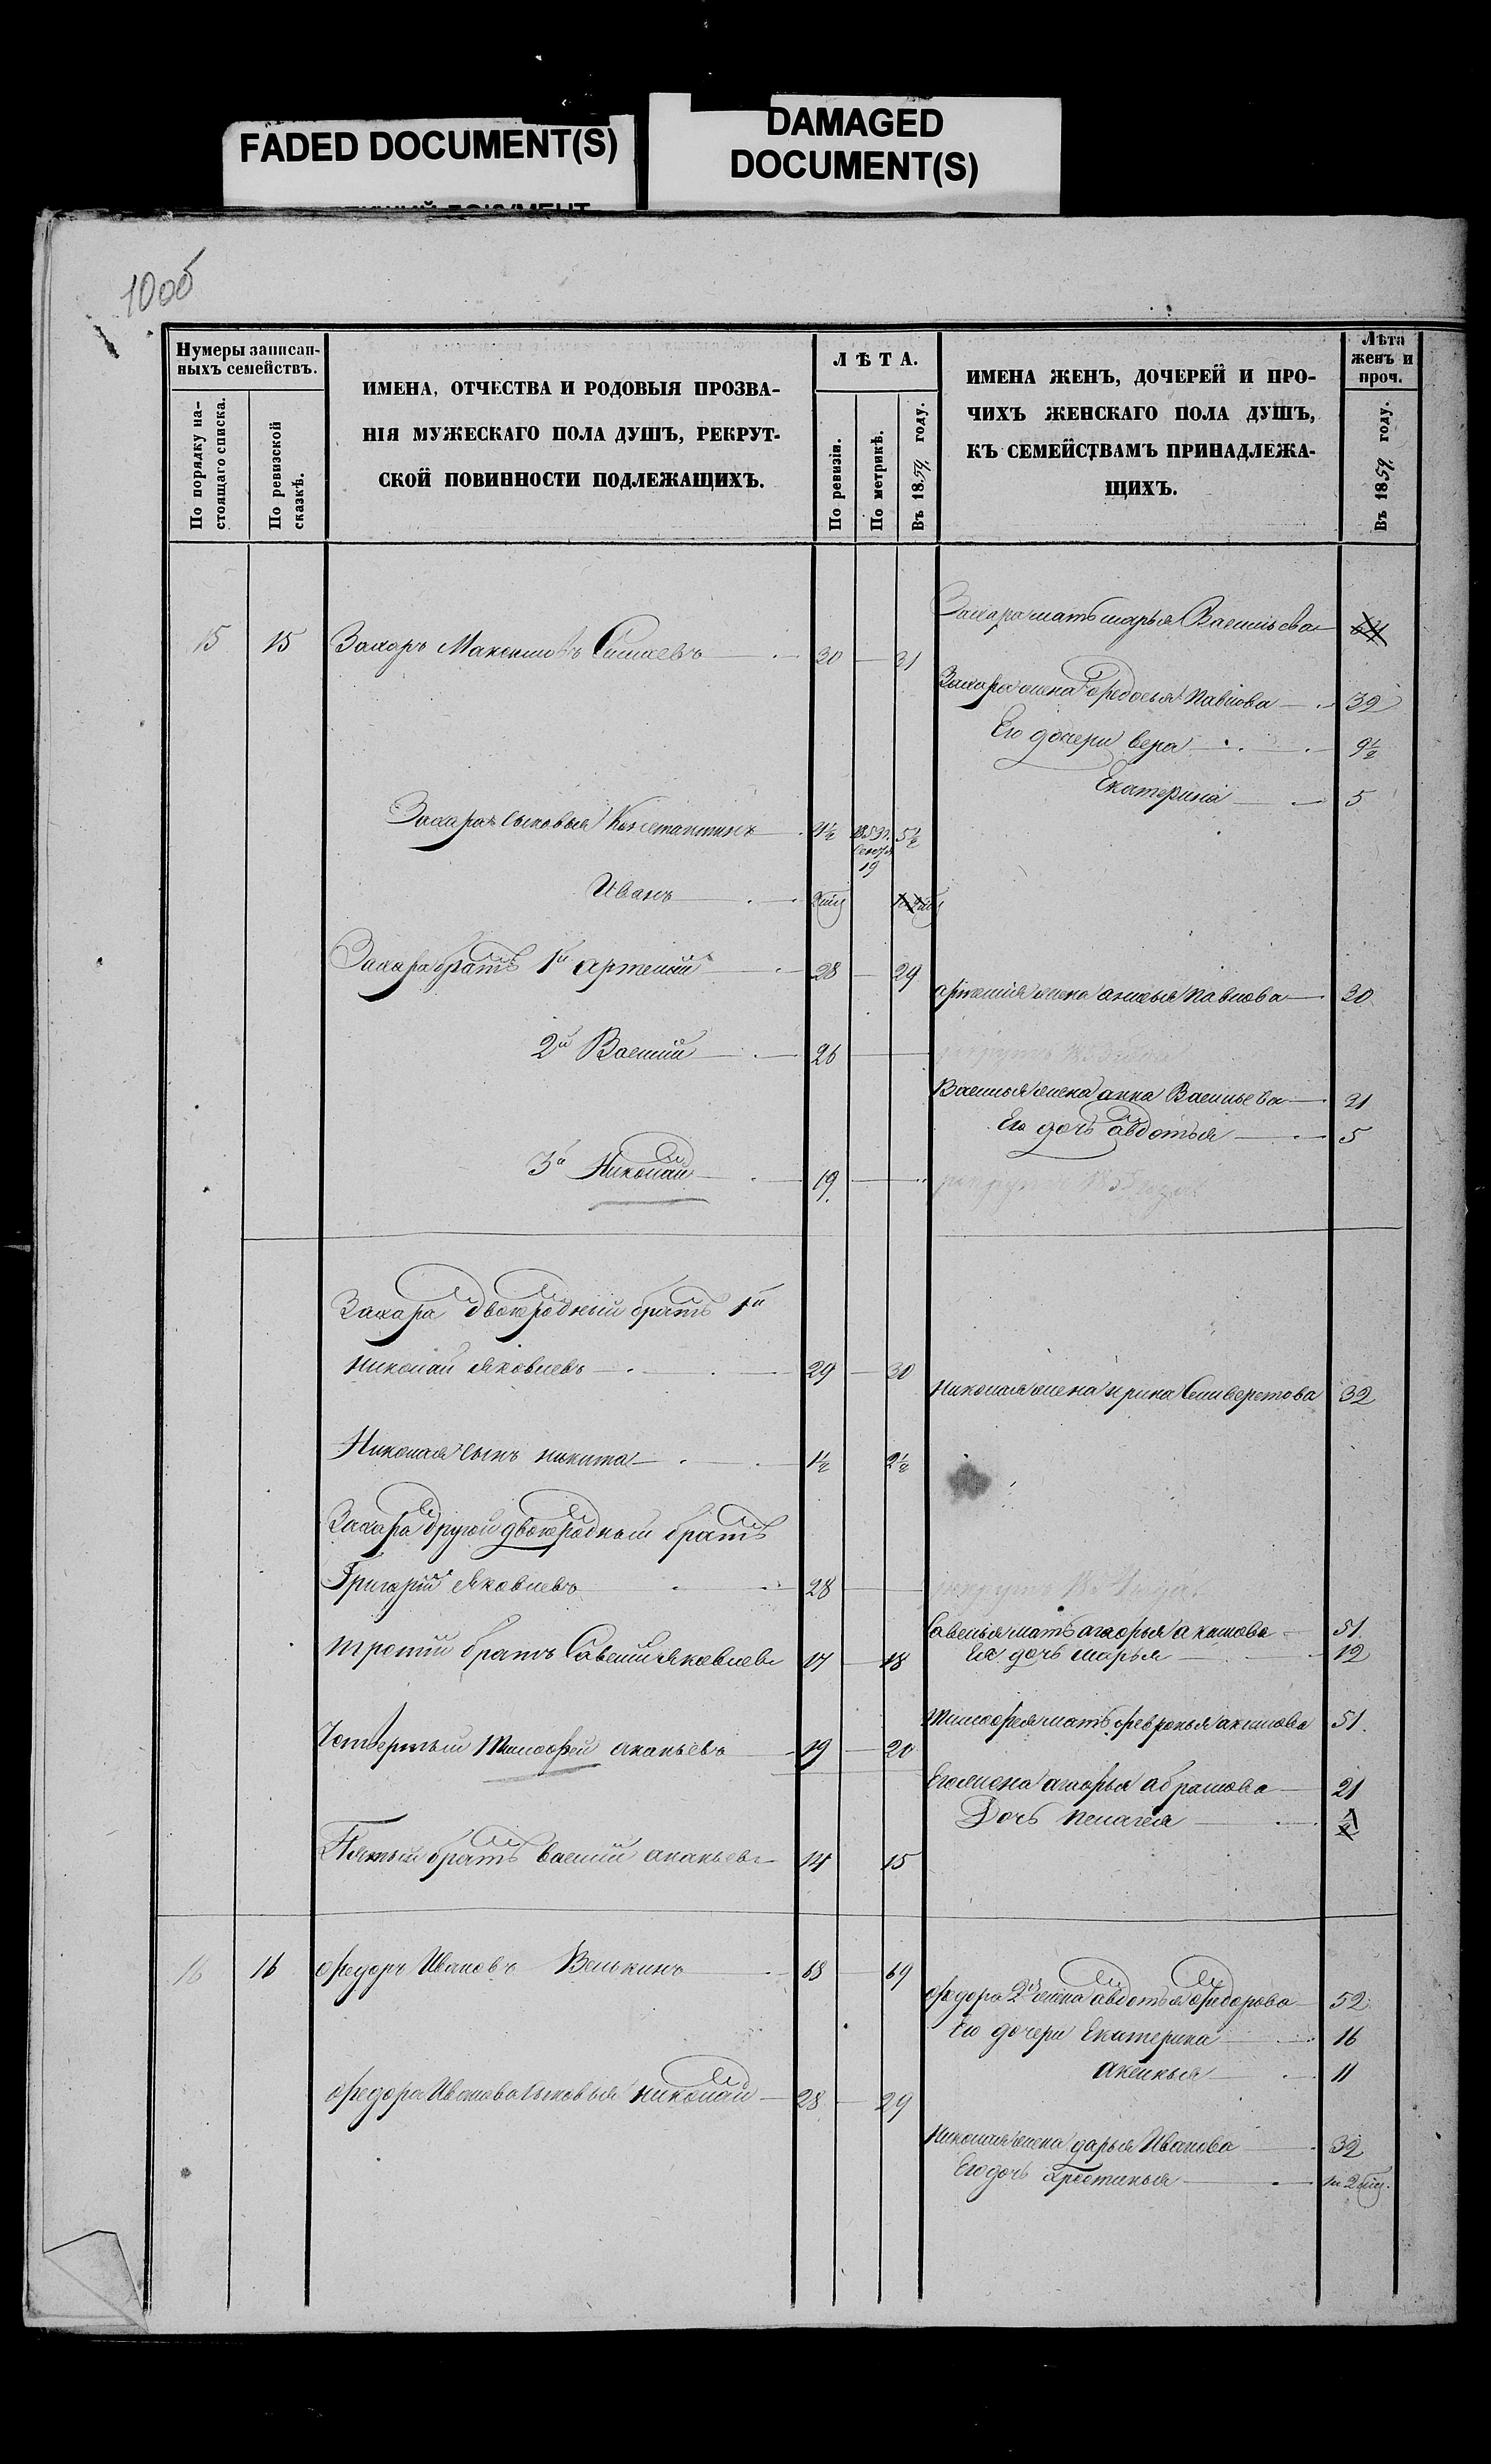 FADED DOCUMENT(S)
DAMAGED
DOCUMENT(S)
10об
Нумеры записан-
ныхъ семействъ.
По порядку на-
стоящаго списка.
По ревизской
сказкѣ.
ИМЕНА, ОТЧЕСТВА И РОДОВЫЯ ПРОЗВА-
НІЯ МУЖЕСКАГО ПОЛА ДУШЪ, РЕКРУТ-
СКОЙ ПОВИННОСТИ ПОДЛЕЖАЩИХЪ.
ЛѢТА.
По ревизіи.
По метрикѣ.
Въ 1859 году.
ИМЕНА ЖЕНЪ, ДОЧЕРЕЙ И ПРО-
ЧИХЪ ЖЕНСКАГО ПОЛА ДУШЪ,
КЪ СЕМЕЙСТВАМЪ ПРИНАДЛЕЖА-
ЩИХЪ.
Лѣта
женъ и
проч.
Въ 1859 году.
Захара мать марья Васильева
15 15 Захаръ Максимовъ 30 31
Захара жена федосья Павлова 32
Его дочери вера 9½
Екатерина 5
Захара сыновья Константинъ 4½ 5½
19
Иванъ
Захара братъ 1й артемий 28 29
артемия жена Павлова 30
2й Василий 26
Василья жена анна Васильева 21
Его дочь авдотья 5
3й Николай 19
Захара двоюродный братъ 1й
Николай Яковлевъ 29 30
Николая жена ирина Селиверстова 32
Николая сынъ никита 1½ 2½
Захара другой двоюродный братъ
Григорий Яковлевъ 28
Савелья мать агафья акимова 51
Ея дочь марья 12
третий братъ Савелий Яковлевъ 17 18
Тимофея мать февронья акимова 51
Четвертый Тимофей ананьевъ 19 20
Его жена агафья абрамова 21
Дочь пелагея
Пятый братъ василий ананьевъ 14 15
16 16 Федоръ Ивановъ Велькинъ 68 69
Федора 2я жена авдотья федорова 52
Его дочери Екатерина 16
аксинья 11
Федора Иванова сыновья николай 28 29
Николая жена дарья Иванова 32
Его дочь